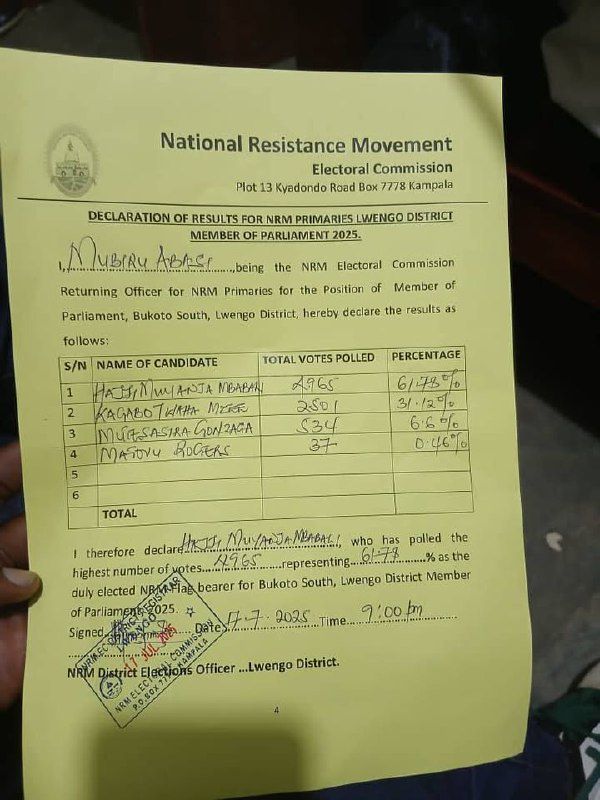 National Resistance Movement
Electoral Commission
Plot 13 Kyadondo Road Box 7778 Kampala
DECLARATION OF RESULTS FOR NRM PRIMARIES LWENGO DISTRICT
MEMBER OF PARLIAMENT 2025.
I, MUBIRU ABASI ......,being the NRM Electoral Commission
Returning Officer for NRM Primaries for the Position of Member of
Parliament, Bukoto South, Lwengo District, hereby declare the results as
follows:
S/N NAME OF CANDIDATE TOTAL VOTES POLLED PERCENTAGE
1 HAJJI MUYANJA MBABALI 4965 61.78%
2 KAGABO TWAHA MZEE 2501 31.12%
3 MUGASASIRA GONZAGA 534 6.6%
4 MASOVU ROGERS 37 0.46%
5
6
TOTAL
I therefore declare HAJJI MUYANJA MBABALI, who has polled the
highest number of votes 4965 representing 61.78 % as the
duly elected NRM Flag bearer for Bukoto South, Lwengo District Member
of Parliament 2025.
Signed Date 17.7.2025 Time 9:00 pm
NRM District Elections Officer ...Lwengo District.
NRM EC DISTRICT REGISTRAR
LWENGO
17 JUL 2025
NRM ELECTORAL COMMISSION
P.O.BOX 7778, KAMPALA
4